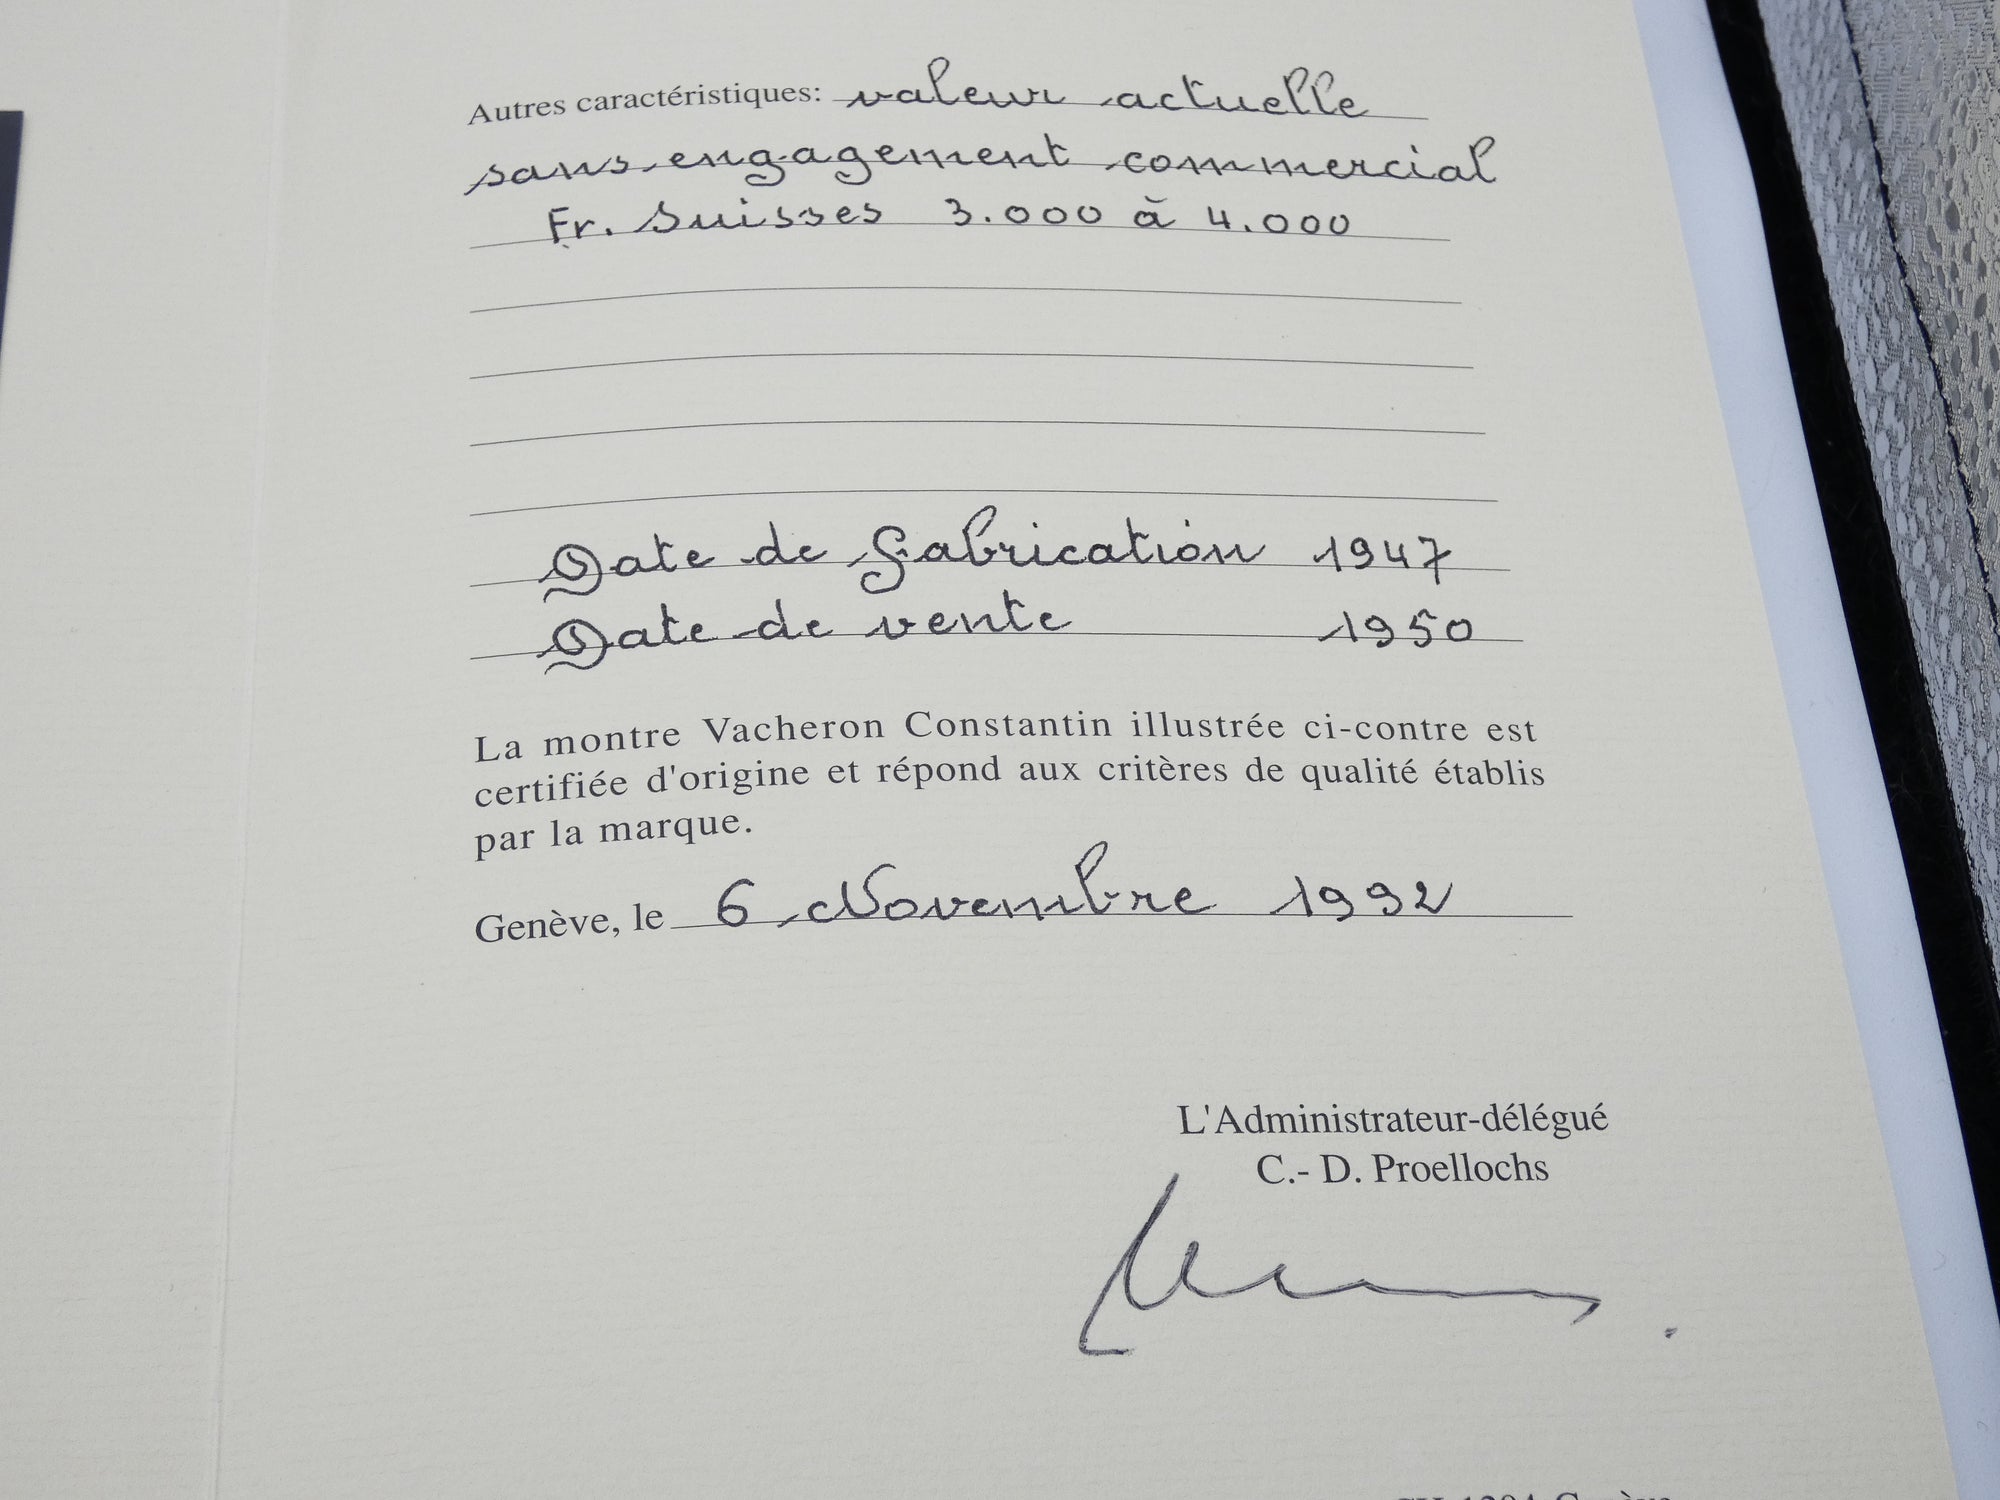 Autres caractéristiques: valeur actuelle
sans engagement commercial
Fr. Suisses 3.000 à 4.000
Date de fabrication 1947
Date de vente 1950
La montre Vacheron Constantin illustrée ci-contre est
certifiée d'origine et répond aux critères de qualité établis
par la marque.
Genève, le 6 Novembre 1992
L'Administrateur-délégué
C.- D. Proellochs